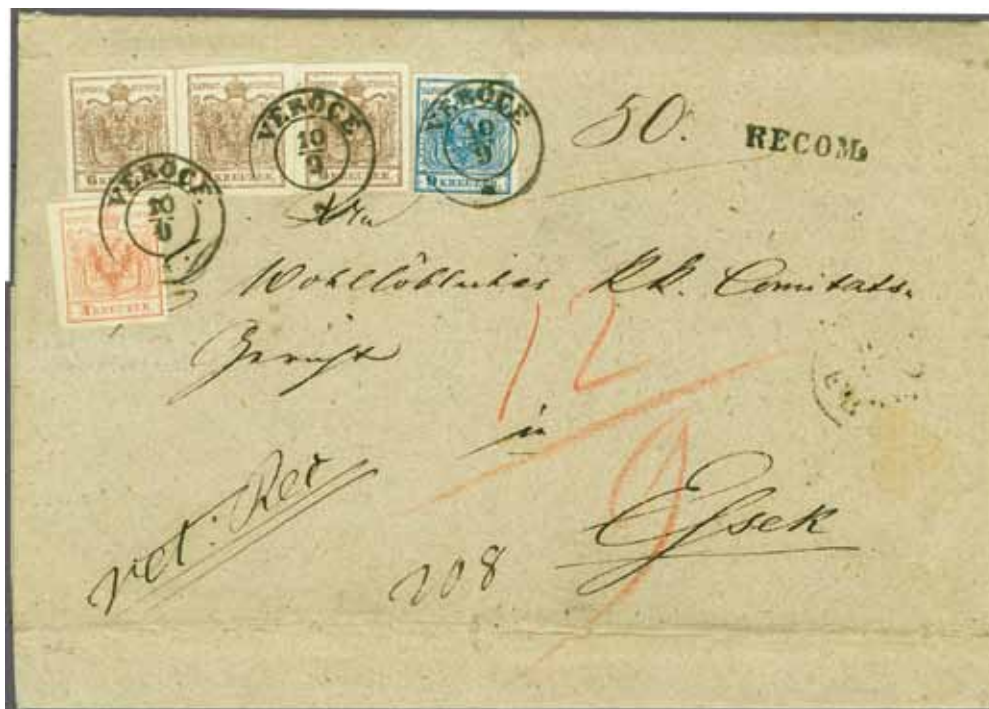 VERŐCE
10
9
VERŐCE
10
9
VERŐCE
10
9
6 KREUZER
9 KREUZER
3 KREUZER
50.
RECOM.
An
Wohllöbliches KK. Comitats-
Gericht
in
Essek
ret: Rec
208
12
9